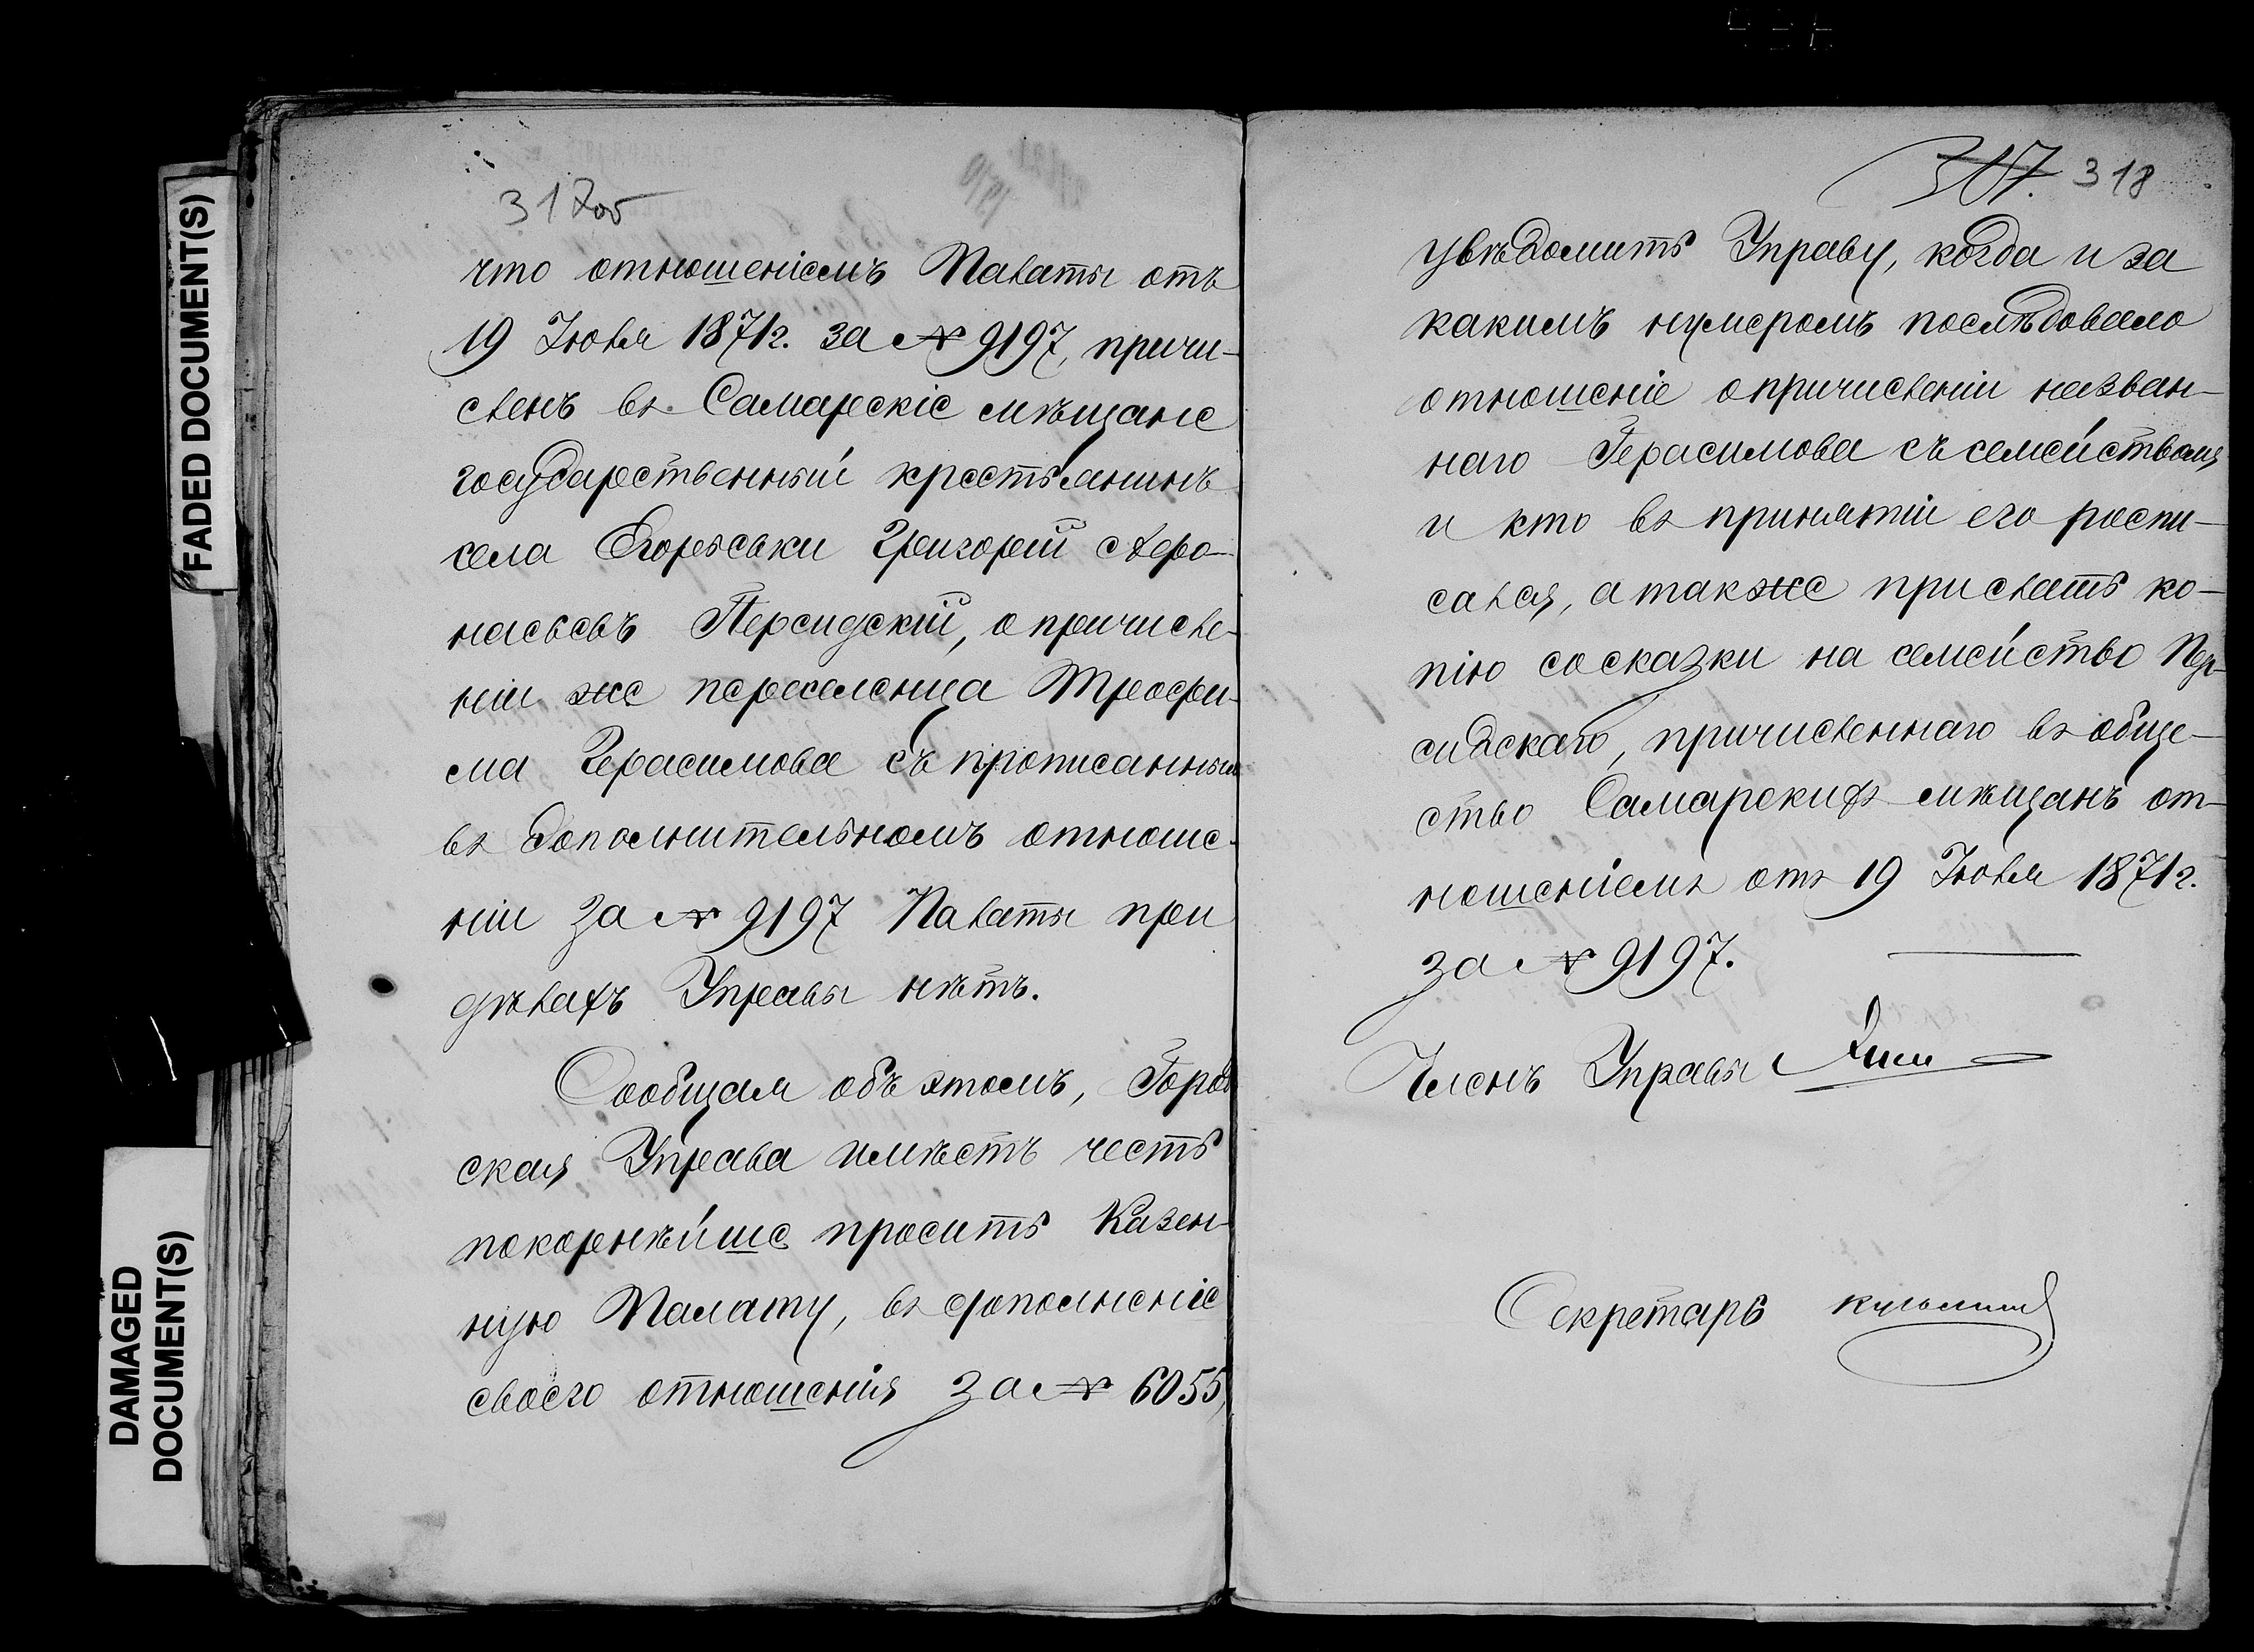 317об
что отношеніемъ Палаты отъ
19 Іюля 1871г. за № 9197, причи-
сленъ въ Самарскіе мѣщане
государственный крестьянинъ
села Егорьевки Григорій Афо-
насьевъ Персидскій, о причисле-
ніи же переселенца Трофи-
ма Герасимова съ прописаннымъ
въ дополнительномъ отноше-
ніи за № 9197 Палаты при
дѣлахъ Управы нѣтъ.
Сообщая объ этомъ, Город
ская Управа имѣетъ честь
покорнѣйше просить Казен-
ную Палату, въ дополненіе
своего отношенія за № 6055,
307. 318
увѣдомить Управу, когда и за
какимъ нумеромъ послѣдовало
отношеніе о причисленіи назван-
наго Герасимова съ семействомъ
и кто въ принятіи его роспи-
сался, а также прислать ко-
пію со сказки на семейство Пер-
сидскаго, причисленнаго въ обще-
ство Самарскихъ мѣщанъ от-
ношеніемъ отъ 19 Іюля 1871г.
за № 9197.
Членъ Управы
Секретарь
FADED DOCUMENT(S)
DAMAGED
DOCUMENT(S)